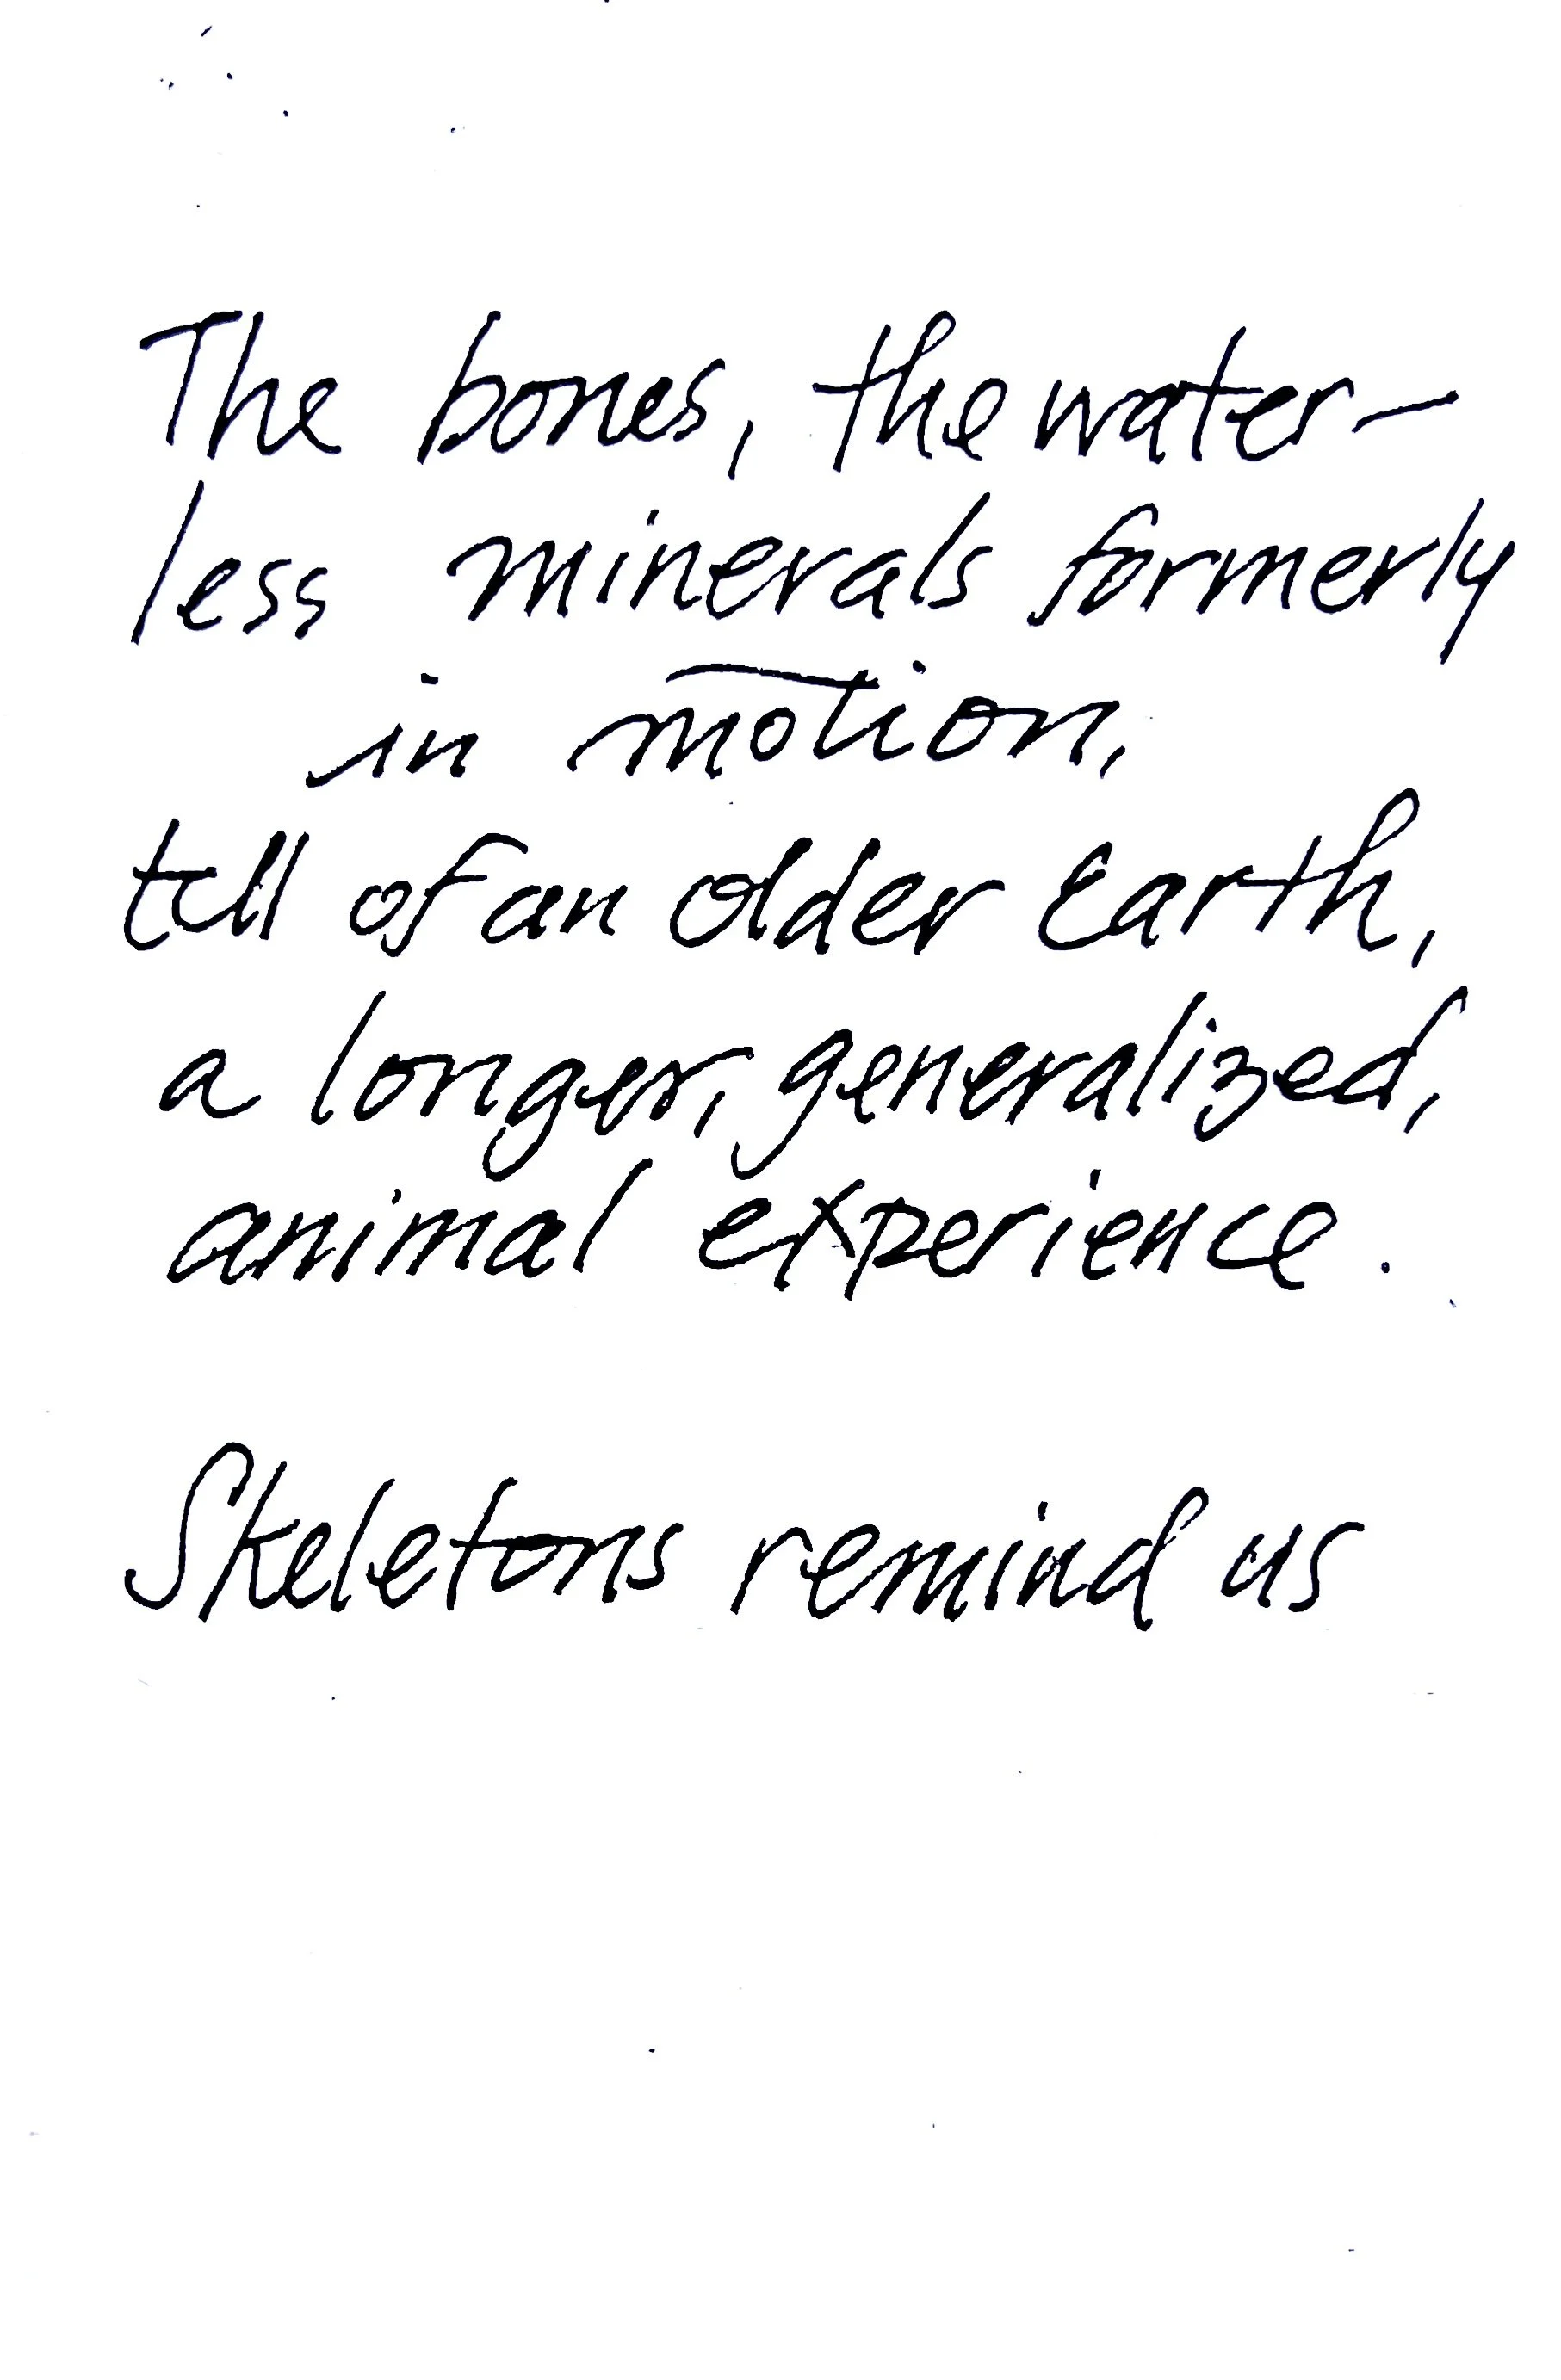 The bones, the water-
less minerals formerly
in motion,
tell of an older earth,
a longer, generalized,
animal experience.
Skeletons remind us